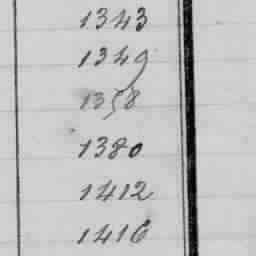 1343
1349
1358
1380
1412
1416